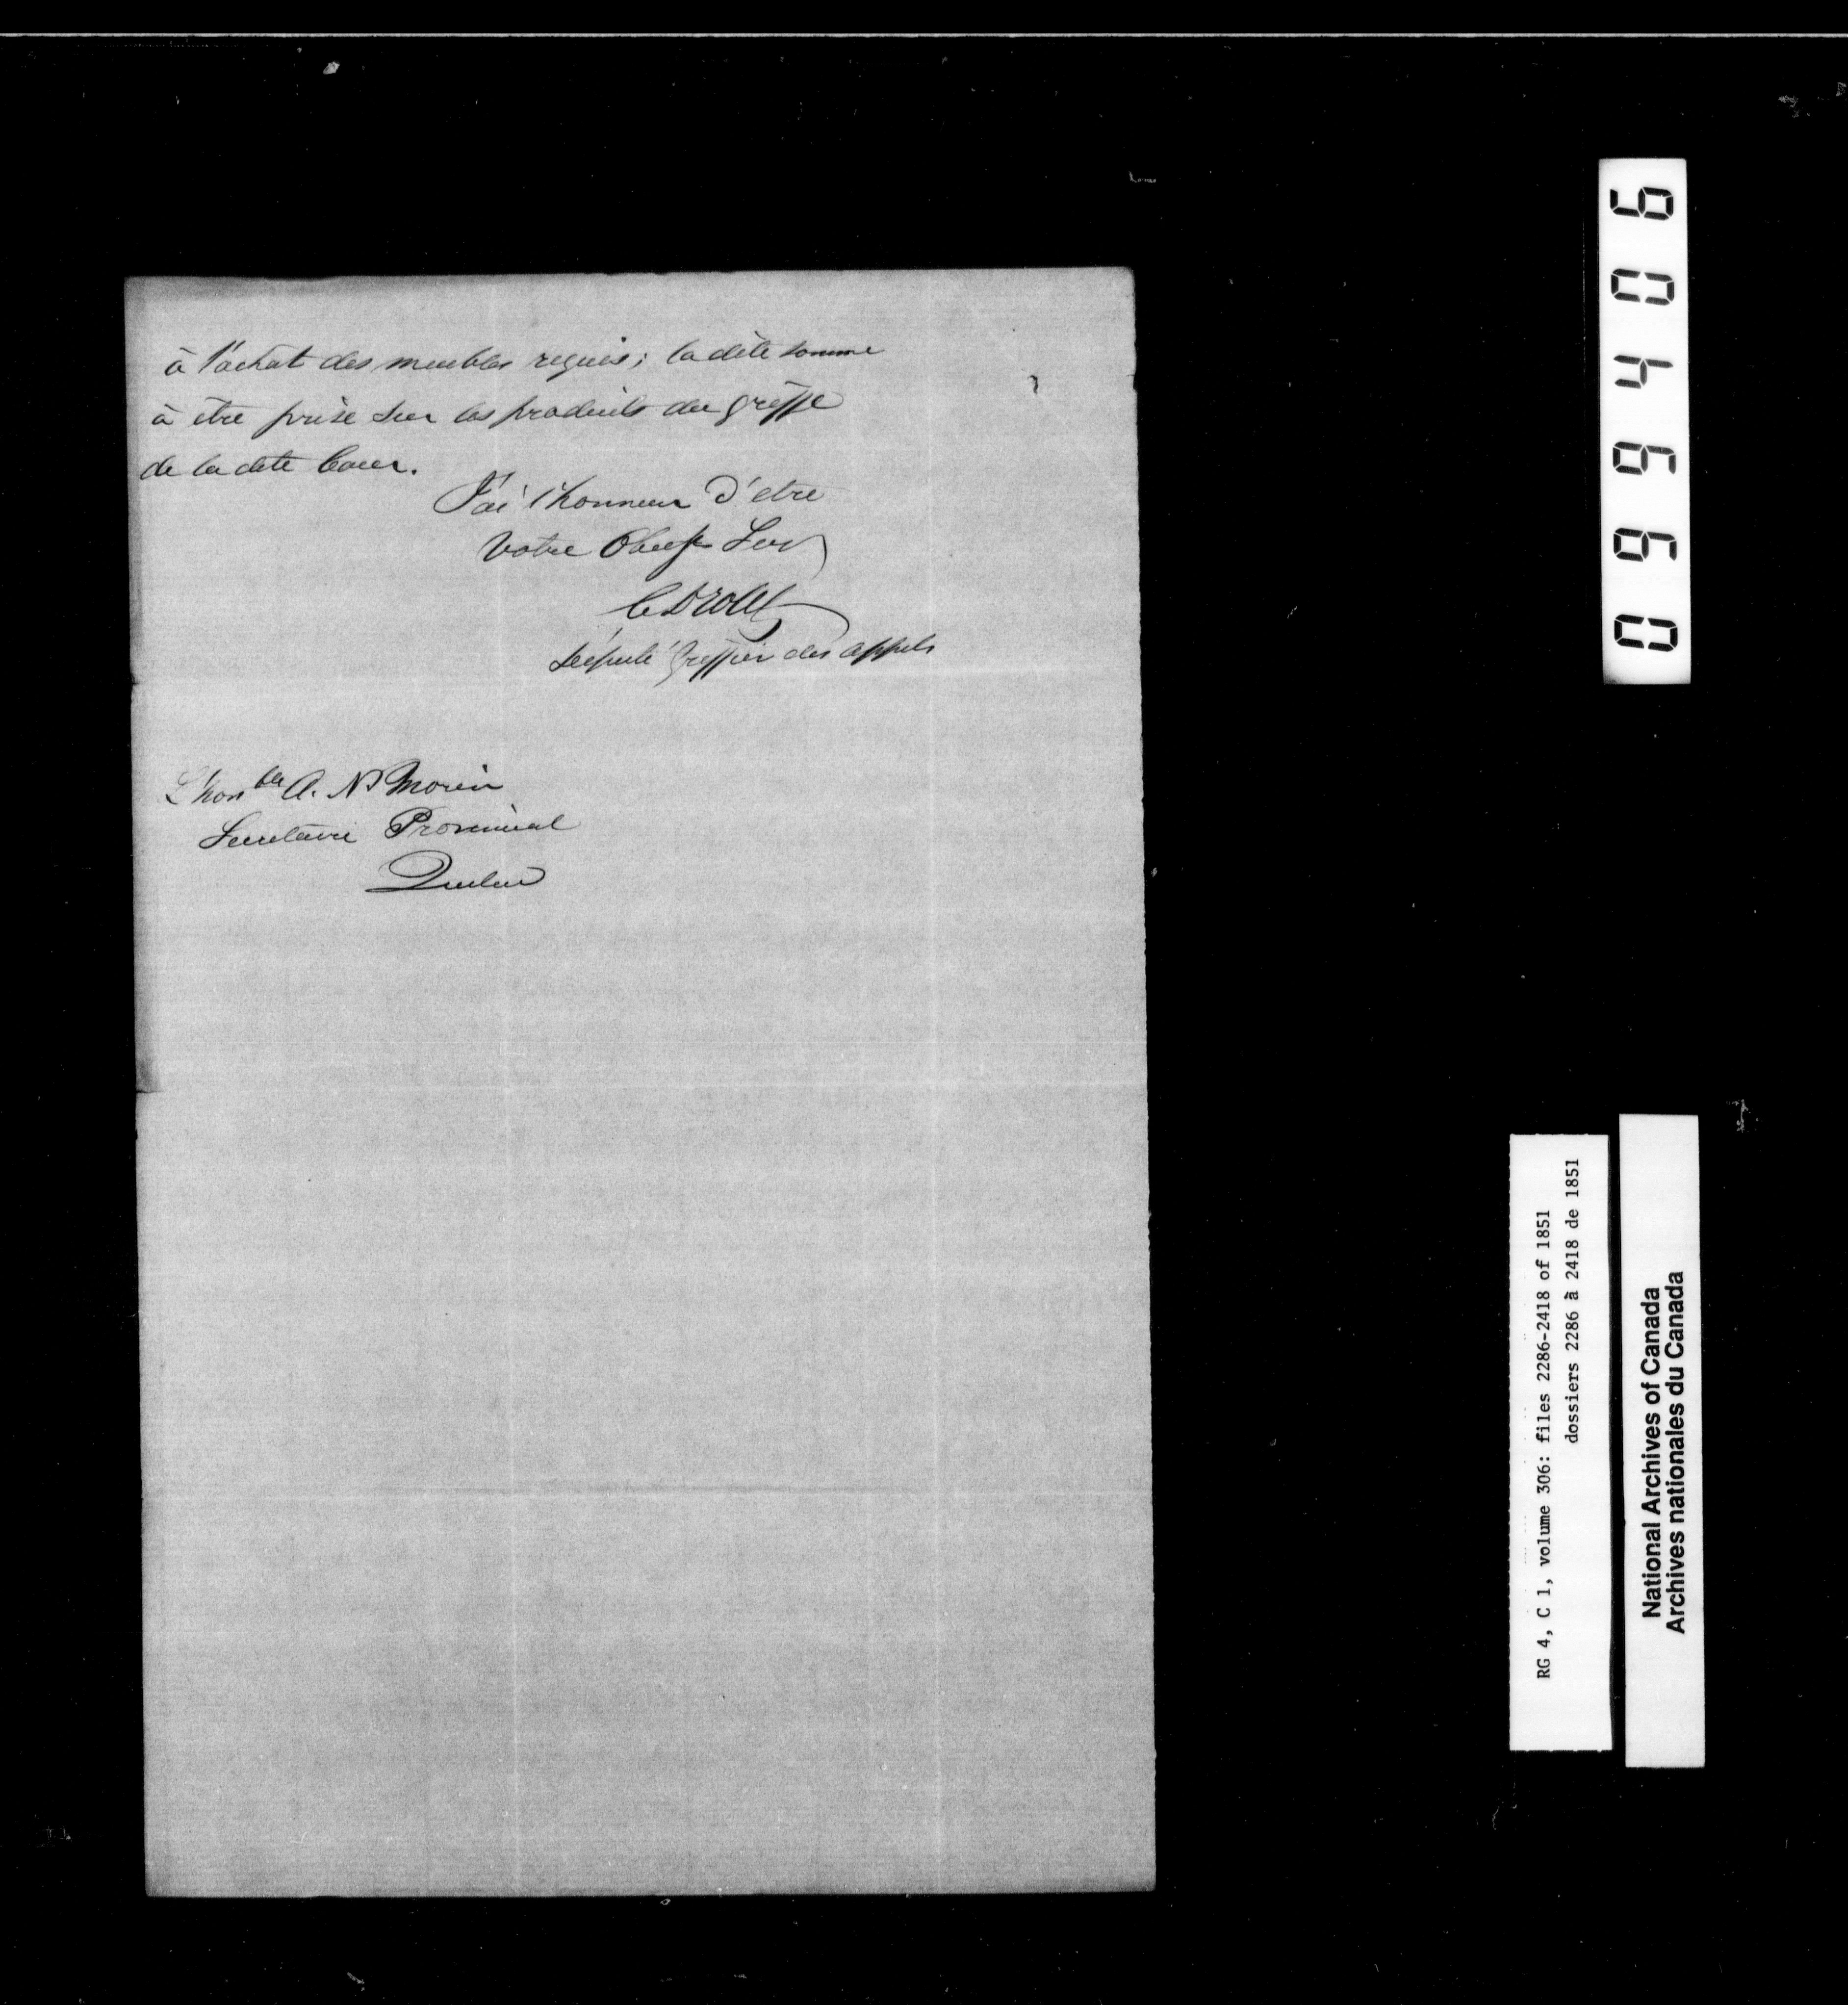 à l'achat des meubles requis; la dite somme
à etre prise sur les produits du greffe
de la dite Cour.
J'ai l'honneur d'etre
Votre Obeist Serv
C Drolet
Député Greffier des appels
L'honble A. N Morin
Secretaire Provincial
Quebec
099406
RG 4, C 1, volume 306: files 2286-2418 of 1851
dossiers 2286 à 2418 de 1851
National Archives of Canada
Archives nationales du Canada